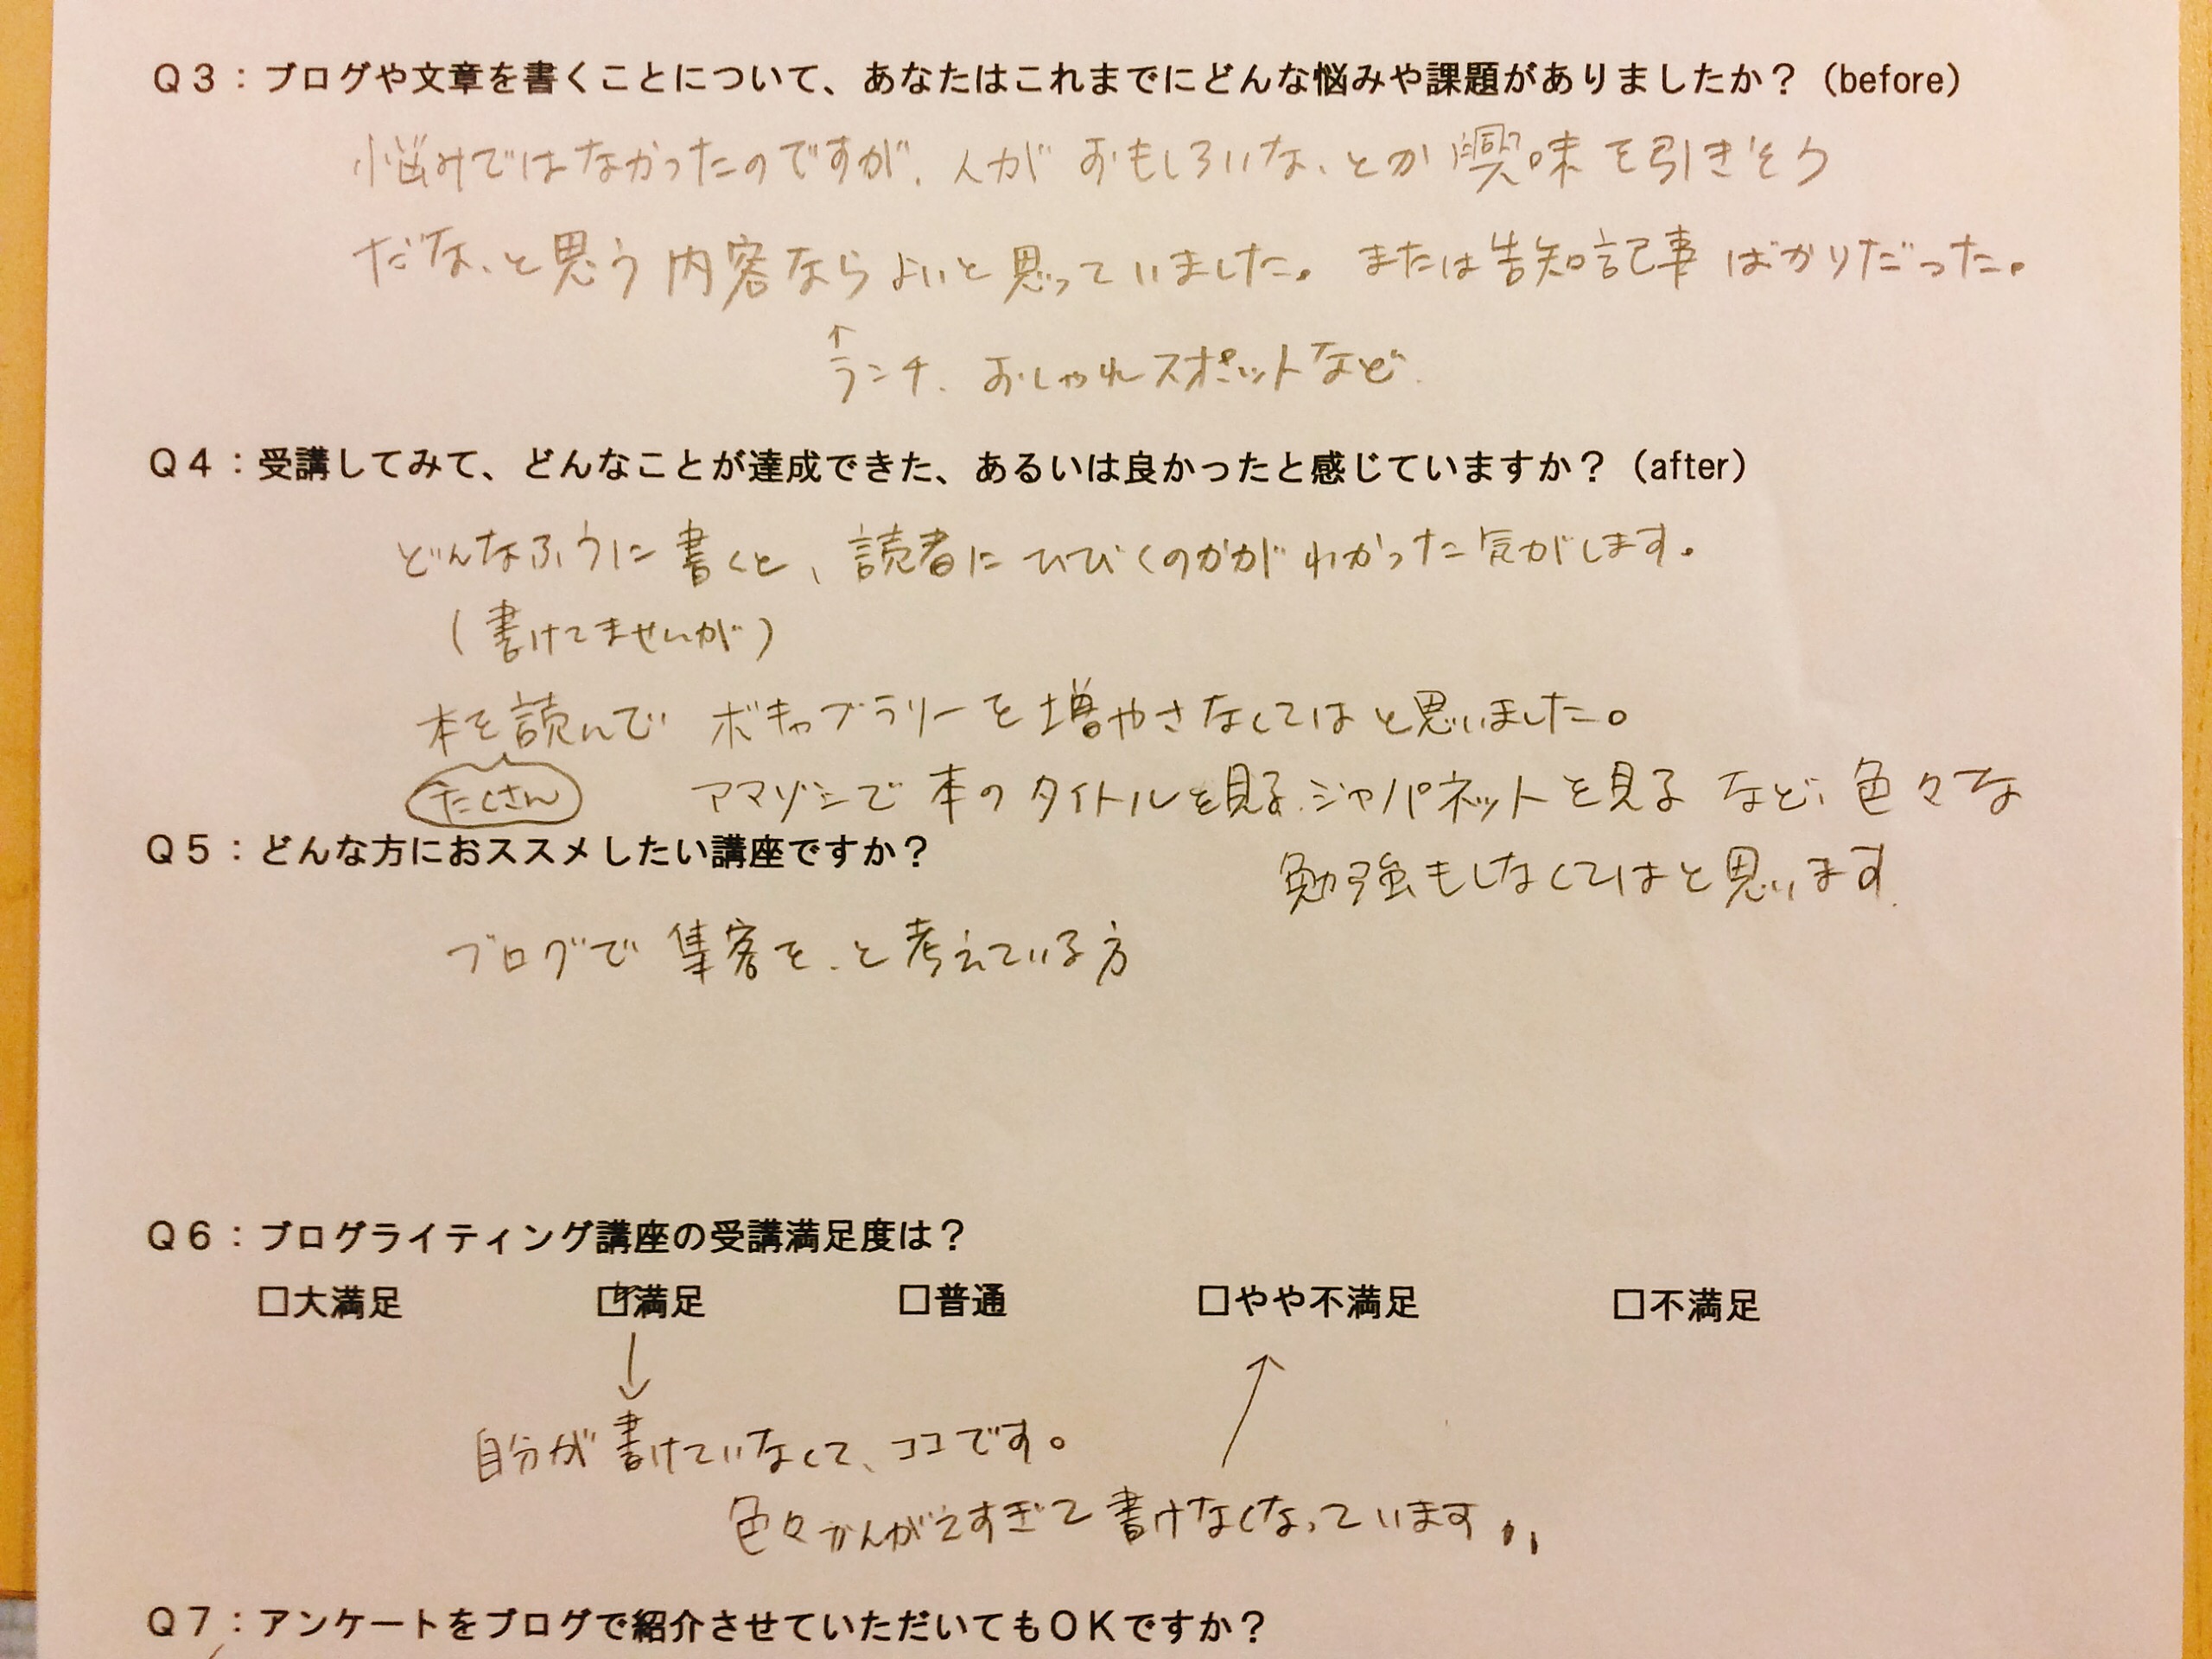 Q3：ブログや文章を書くことについて、あなたはこれまでにどんな悩みや課題がありましたか？（before）
悩みではなかったのですが、人が おもしろいな、とか 興味を引きそう
だな、と思う内容ならよいと思っていました。または告知記事ばかりだった。
↑
ランチ、おしゃれスポットなど.
Q4：受講してみて、どんなことが達成できた、あるいは良かったと感じていますか？（after）
どんなふうに書くと、読者にひびくのかがわかった気がします。
（書けてませんが）
本を読んで ボキャブラリーを増やさなくてはと思いました。
たくさん
アマゾンで本のタイトルを見る、ジャパネットを見る など、色々な
勉強もしなくてはと思います.
Q5：どんな方におススメしたい講座ですか？
ブログで集客を、と考えている方
Q6：ブログライティング講座の受講満足度は？
□大満足 ☑満足 □普通 □やや不満足 □不満足
↓ ↑
自分が書けていなくて、ココです。
色々かんがえすぎて書けなくなっています、、
Q7：アンケートをブログで紹介させていただいてもOKですか？